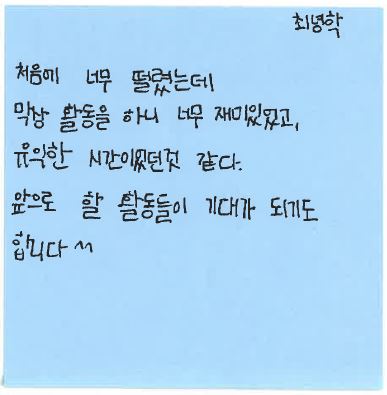 최녕학
처음에 너무 떨렸는데
막상 활동을 하니 너무 재미있었고,
유익한 시간이었던것 같다.
앞으로 할 활동들이 기대가 되기도
합니다 ^^